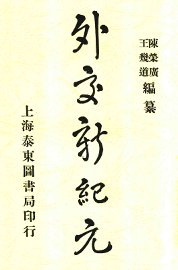 陳榮廣
王幾道
編纂
外交新紀元
上海泰東圖書局印行